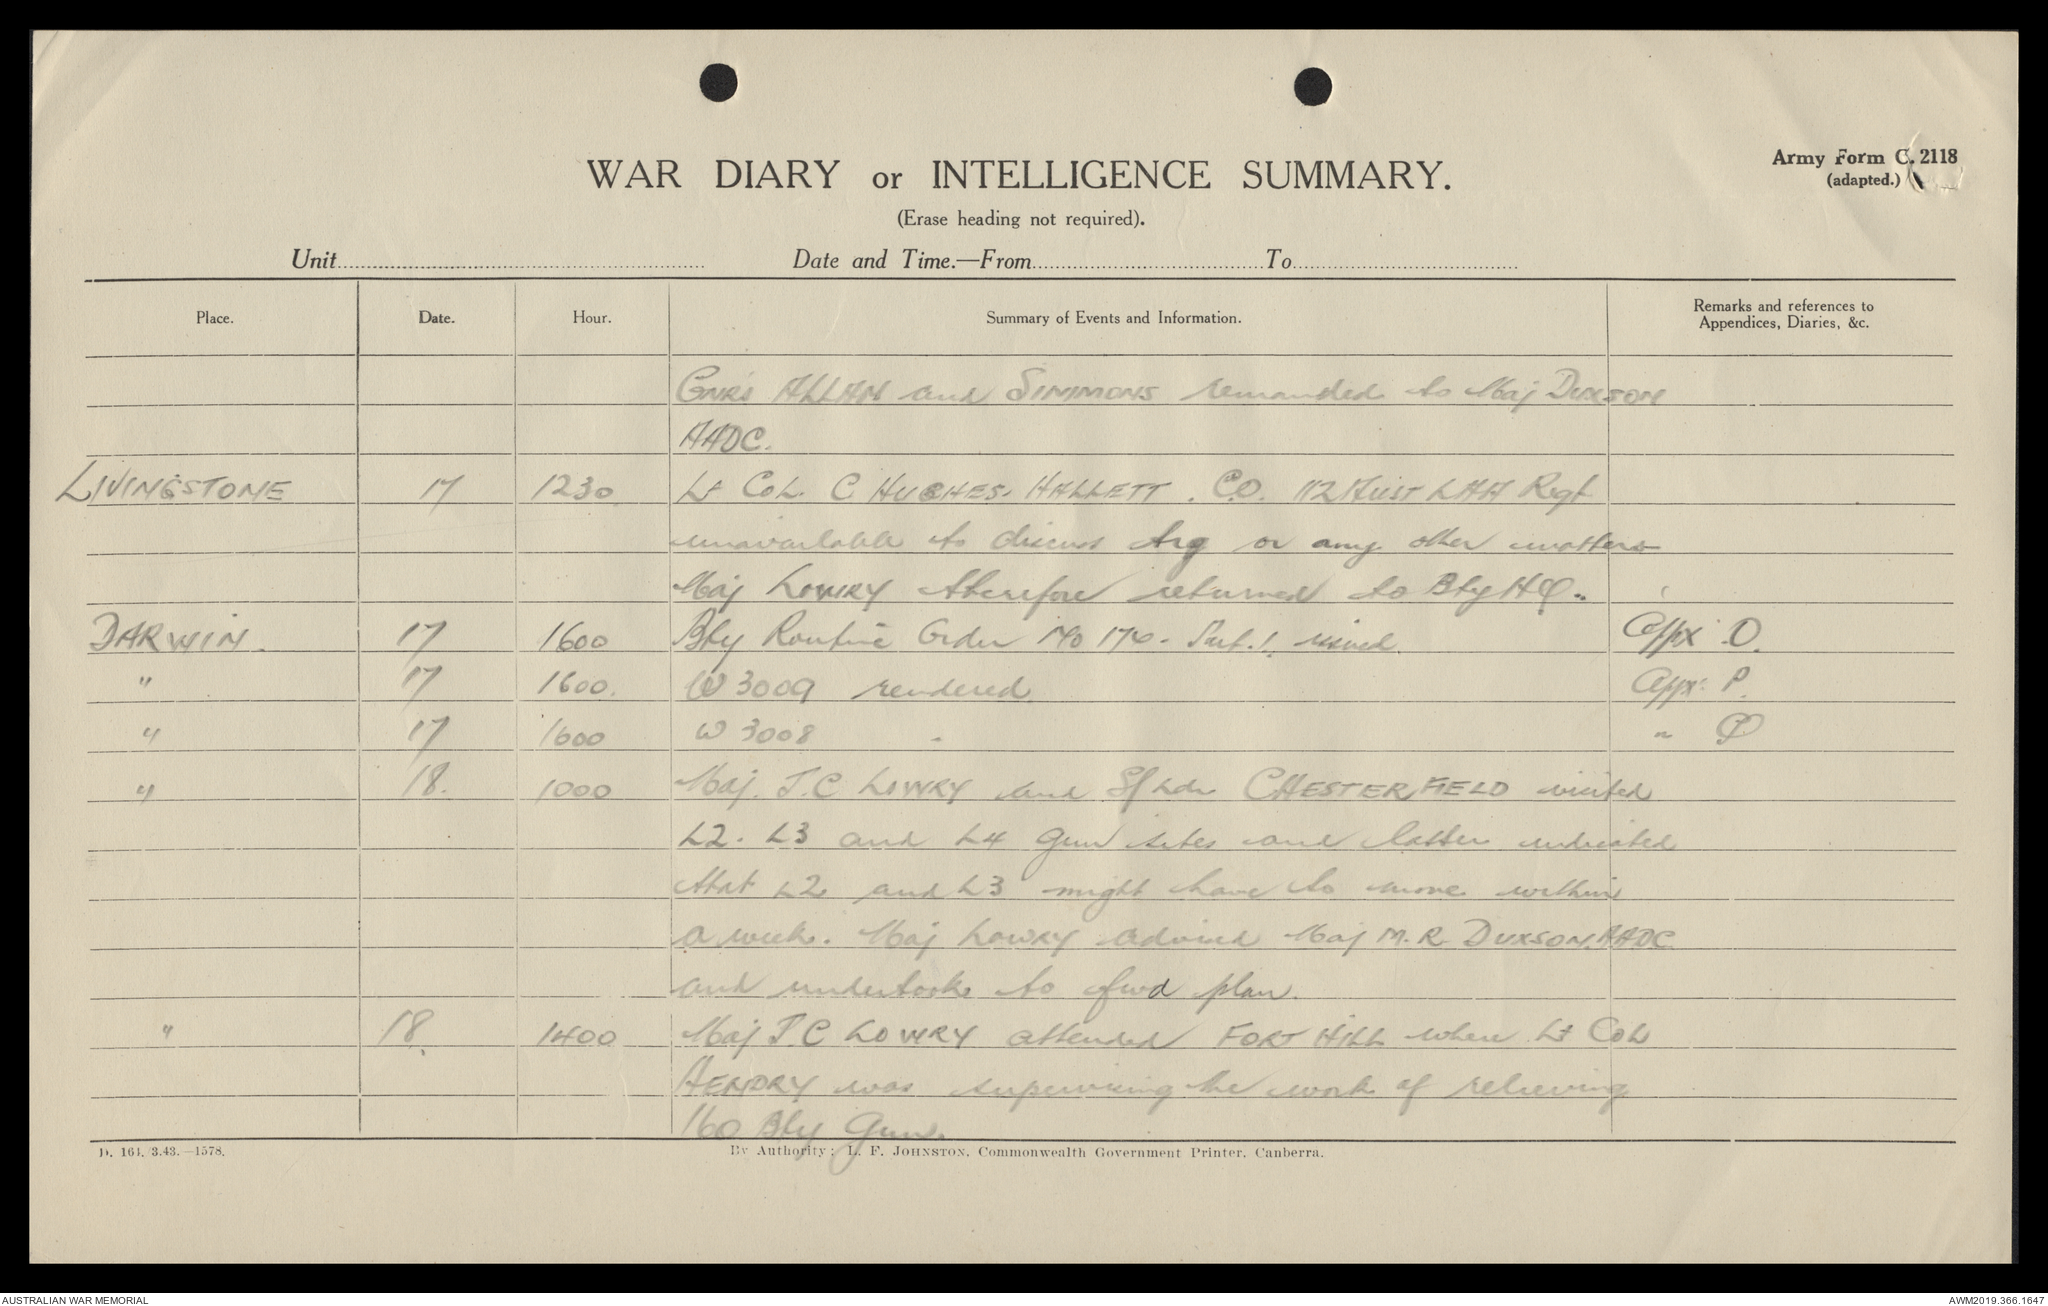 WAR DIARY or INTELLIGENCE SUMMARY.
Army Form C. 2118
(adapted.)
(Erase heading not required).
Unit Date and Time.—From To
Place. Date. Hour. Summary of Events and Information. Remarks and references to
Appendices, Diaries, &c.
Gnrs ALLAN and SIMMONS remanded to Maj DUXSON
AADC.
LIVINGSTONE 17 1230 Lt Col. C HUGHES-HALLETT. C.O. 112 Aust LAA Regt
unavailable to discuss trg or any other matters
Maj LOWRY therefore returned to Bty HQ..
DARWIN. 17 1600 Bty Routine Order No 176 - Part.1. issued. Appx O.
" 17 1600. W 3009 rendered. Appx: P.
" 17 1600 W 3008 " " Q
" 18. 1000 Maj. J.C LOWRY and S/Ldr CHESTERFIELD visited
L2. L3 and L4 gun sites and latter indicated
that L2 and L3 might have to move within
a week. Maj LOWRY advised Maj M.R DUXSON. AADC
and undertook to fwd plan.
" 18. 1400 Maj J.C LOWRY attended FORT HILL where Lt Col
HENDRY was supervising the work of relieving
160 Bty Guns.
D. 164. 3.43.—1578.
By Authority: L. F. JOHNSTON, Commonwealth Government Printer, Canberra.
AUSTRALIAN WAR MEMORIAL
AWM2019.366.1647